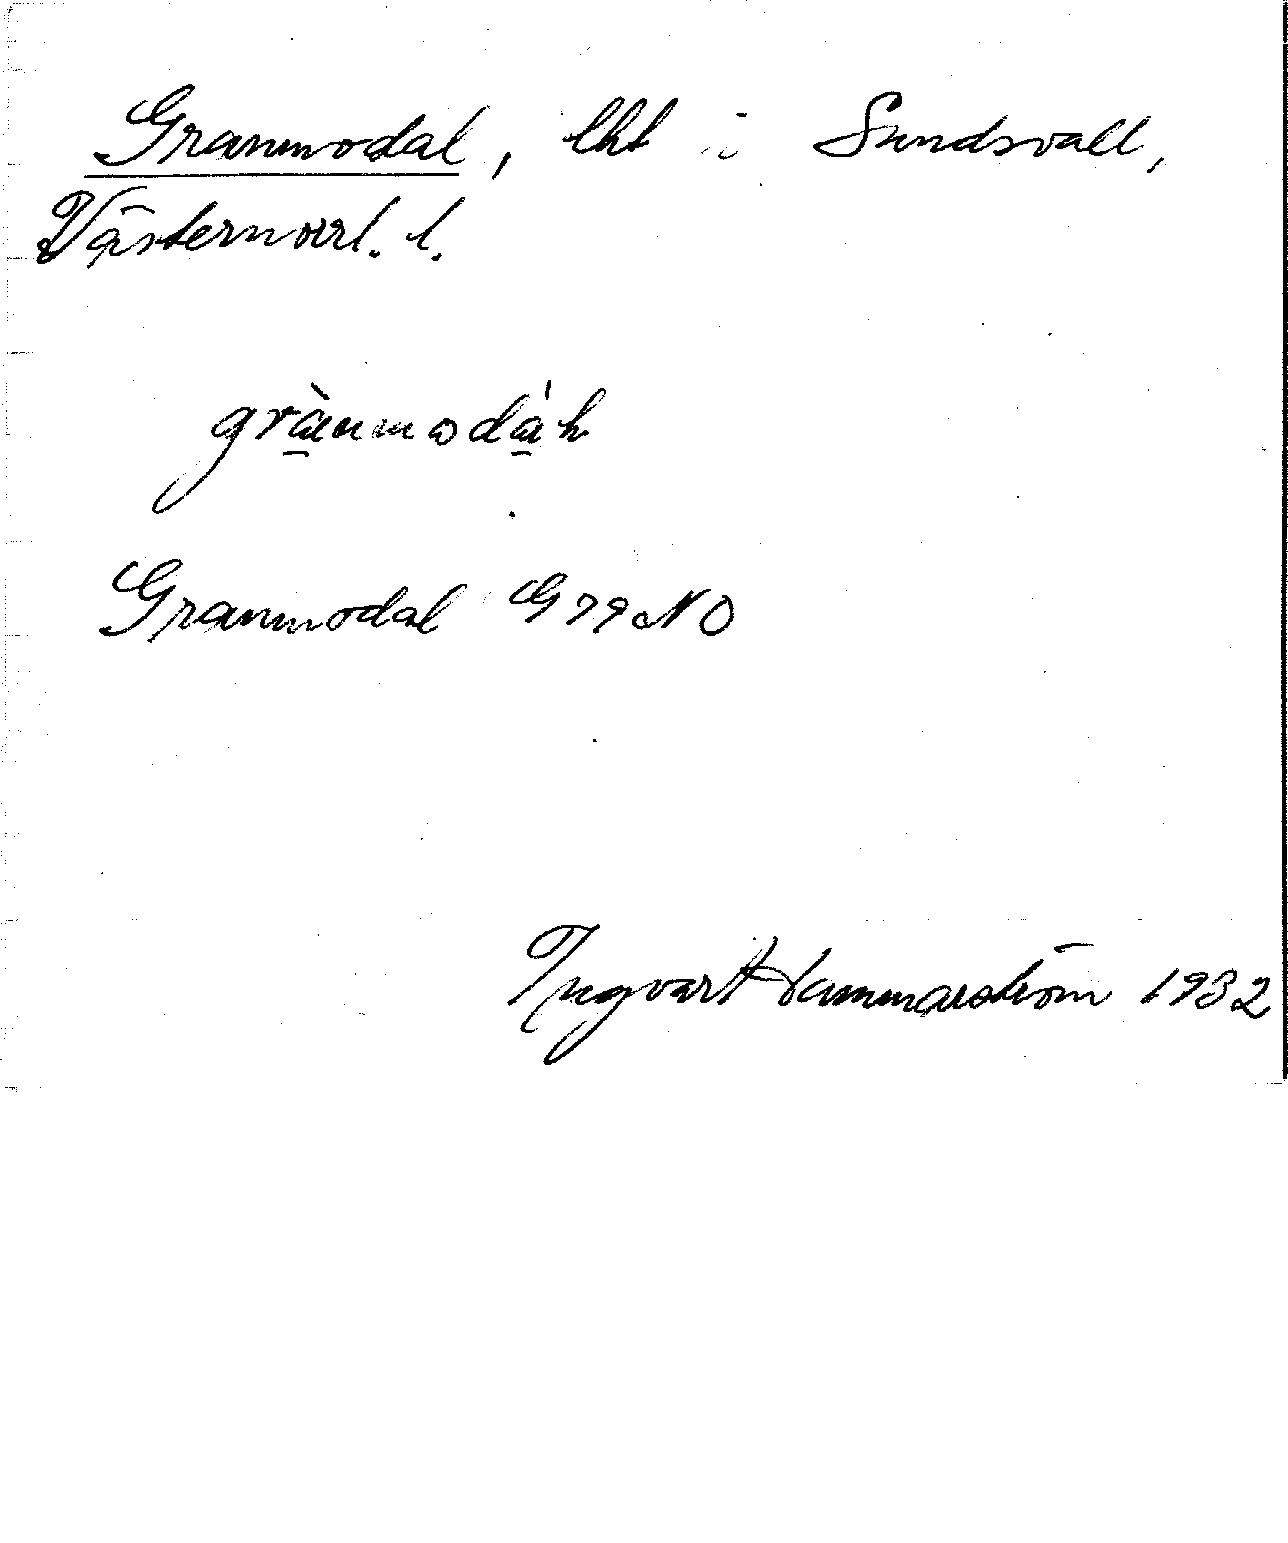 Granmodal, lht i Sundsvall,
Västernorrl. l.
grànmodáh
Granmodal G 79 NO
Ingvart Hammarström 1932